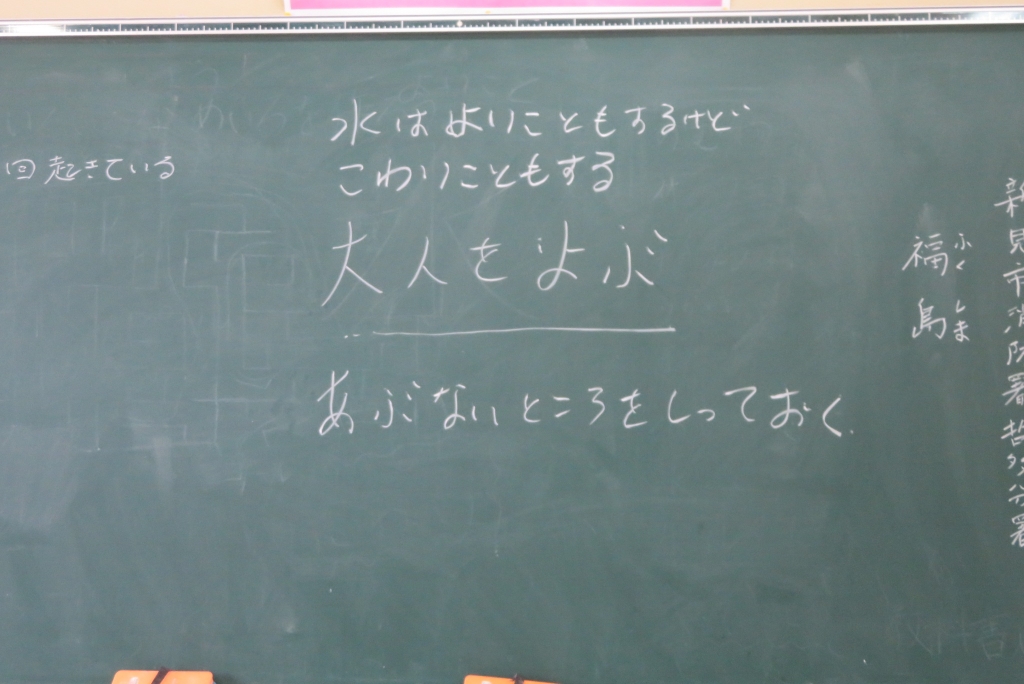 新見市消防署哲多分署
福島
ふくしま
水はよいこともするけど
こわいこともする
大人をよぶ
あぶないところをしっておく
回起きている